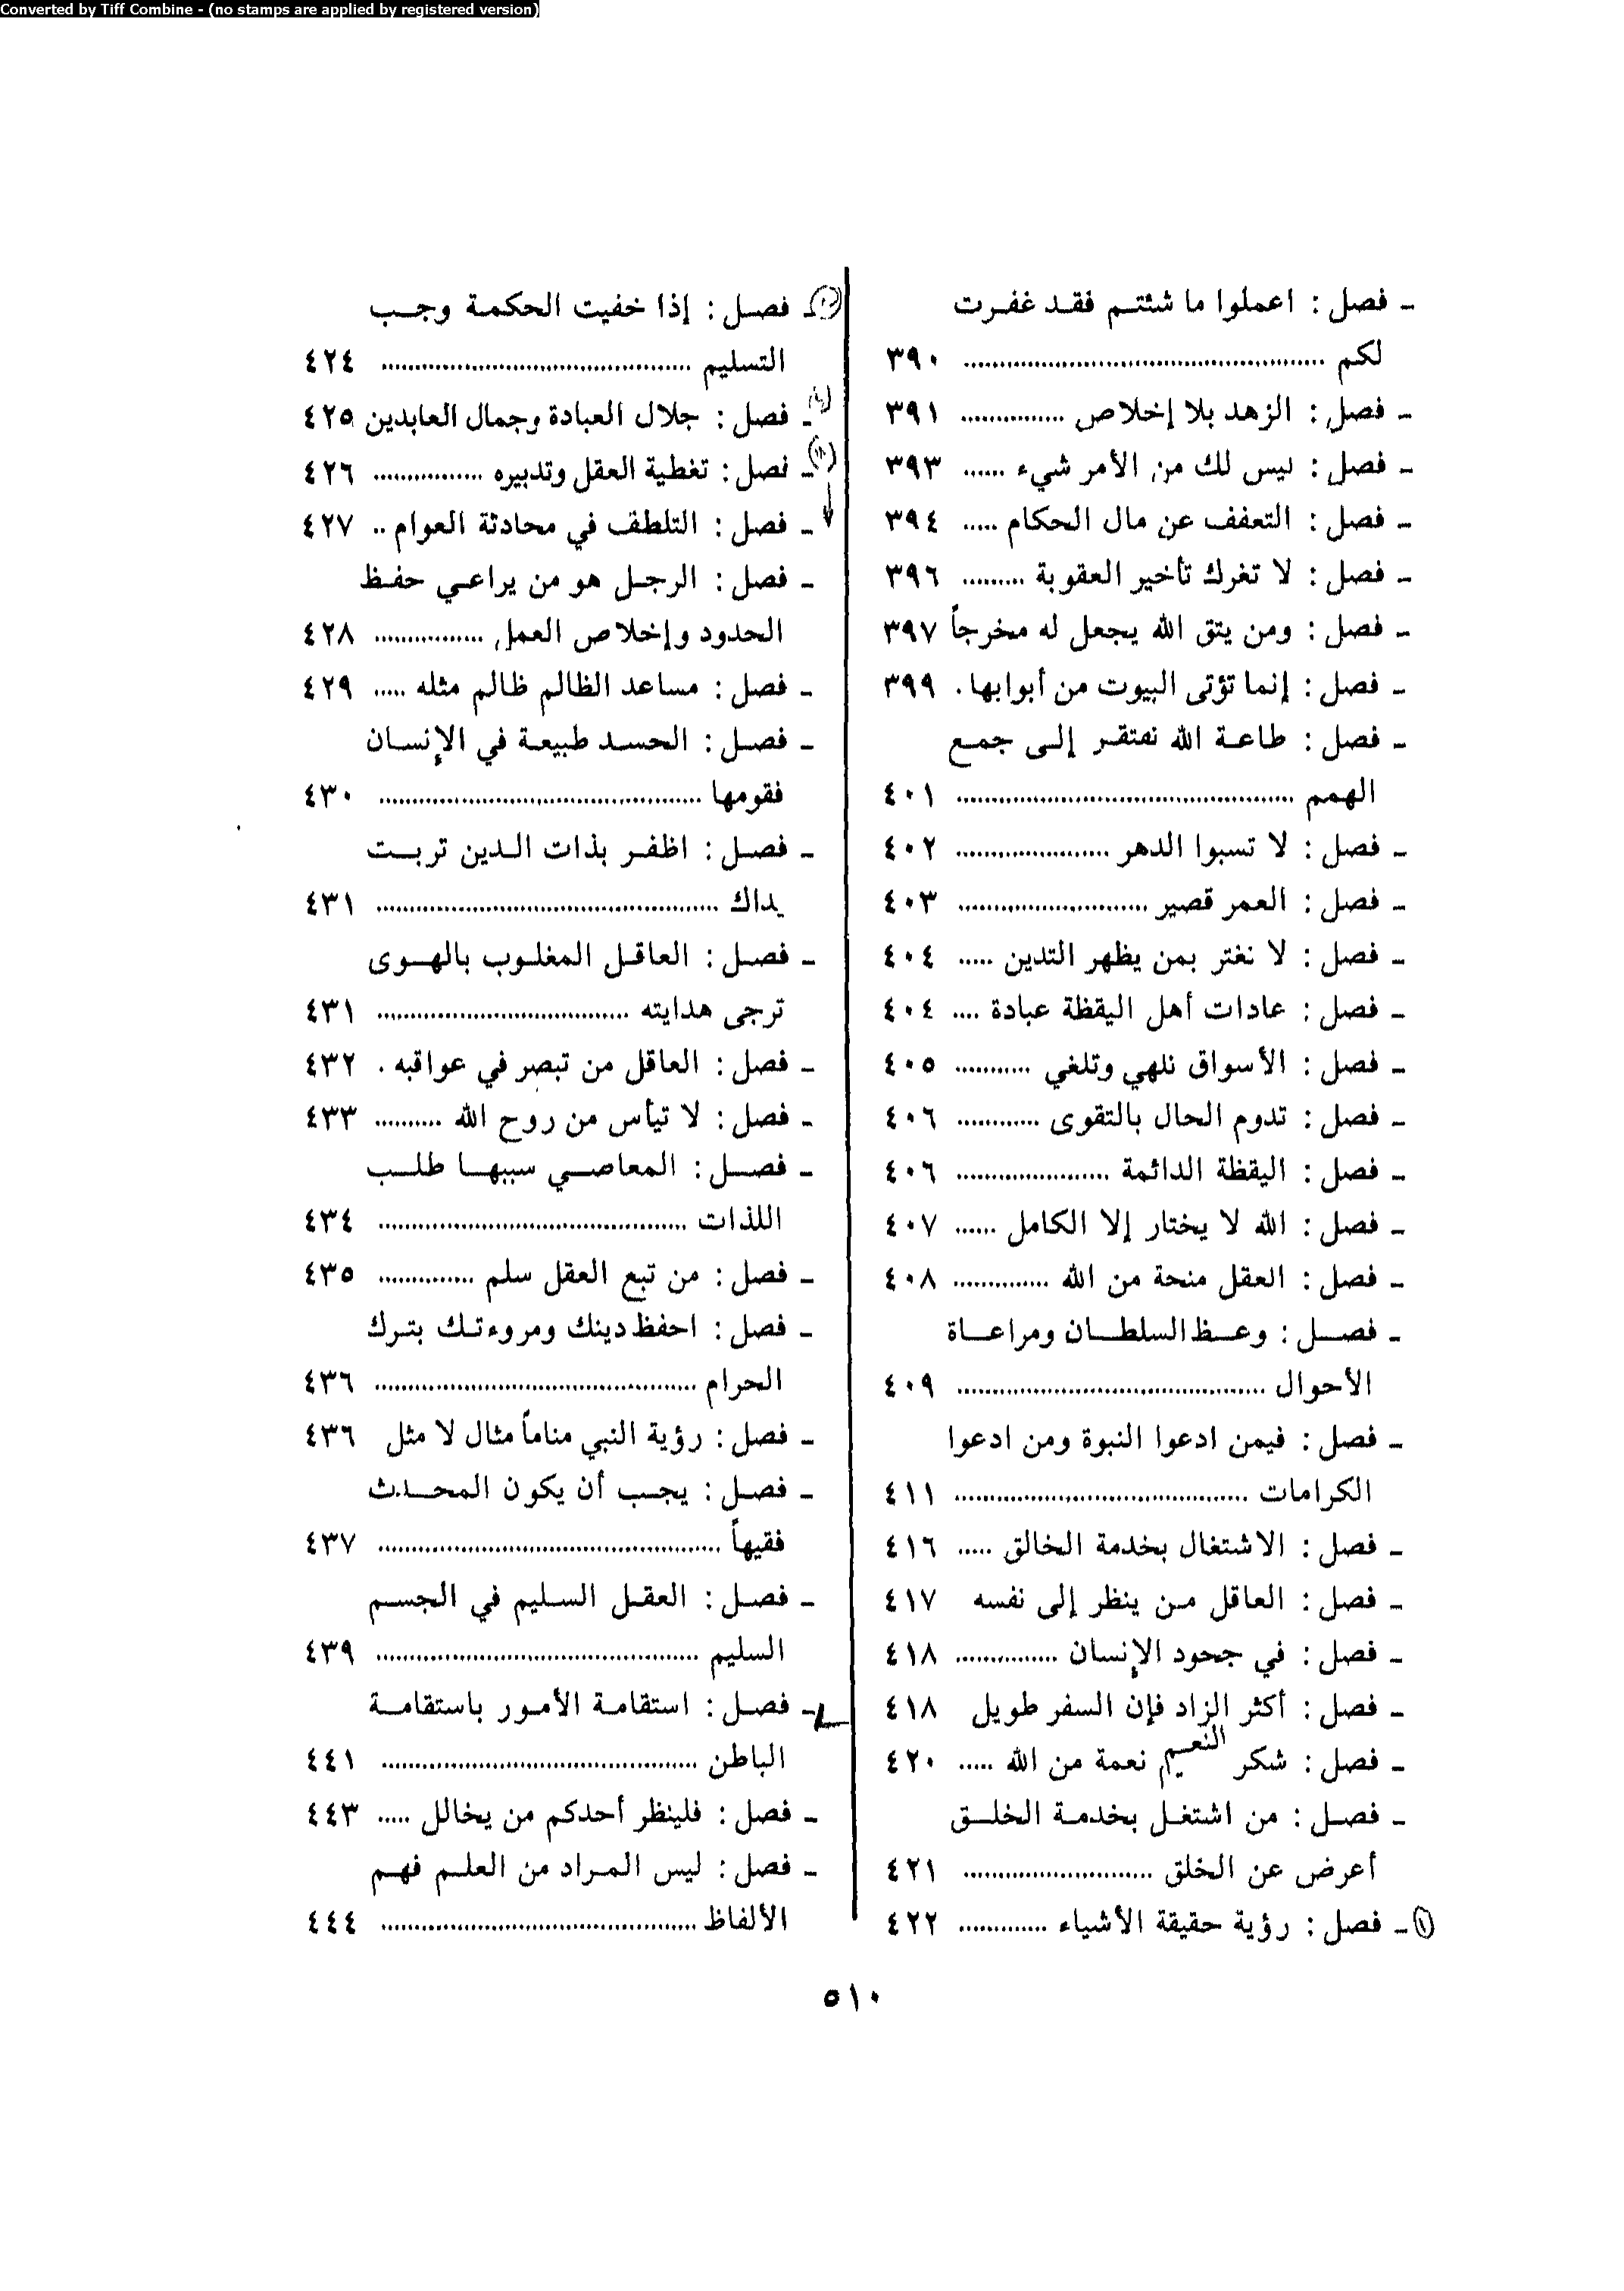 Converted by Tiff Combine - (no stamps are applied by registered version)
ـ فصل : اعملوا ما شئتم فقد غفرت
لكم ........................................... ٣٩٠
ـ فصل : الزهد بلا إخلاص .............. ٣٩١
ـ فصل : ليس لك من الأمر شيء ...... ٣٩٣
ـ فصل : التعفف عن مال الحكام ..... ٣٩٤
ـ فصل : لا تغرك تأخير العقوبة ......... ٣٩٦
ـ فصل : ومن يتق الله يجعل له مخرجاً ٣٩٧
ـ فصل : إنما تؤتى البيوت من أبوابها . ٣٩٩
ـ فصل : طاعة الله تفتقر إلى جمع
الهمم ......................................... ٤٠١
ـ فصل : لا تسبوا الدهر ................... ٤٠٢
ـ فصل : العمر قصير ....................... ٤٠٣
ـ فصل : لا نغتر بمن يظهر التدين ..... ٤٠٤
ـ فصل : عادات أهل اليقظة عبادة .... ٤٠٤
ـ فصل : الأسواق تلهي وتلغي .......... ٤٠٥
ـ فصل : تدوم الحال بالتقوى ............ ٤٠٦
ـ فصل : اليقظة الدائمة ................... ٤٠٦
ـ فصل : الله لا يختار إلا الكامل ...... ٤٠٧
ـ فصل : العقل منحة من الله ............. ٤٠٨
ـ فصل : وعظ السلطان ومراعاة
الأحوال ..................................... ٤٠٩
ـ فصل : فيمن ادعوا النبوة ومن ادعوا
الكرامات .................................... ٤١١
ـ فصل : الاشتغال بخدمة الخالق ..... ٤١٦
ـ فصل : العاقل من ينظر إلى نفسه ٤١٧
ـ فصل : في جحود الإنسان .............. ٤١٨
ـ فصل : أكثر الزاد فإن السفر طويل ٤١٨
ـ فصل : شكر النعيم نعمة من الله ..... ٤٢٠
ـ فصل : من اشتغل بخدمة الخلق
أعرض عن الخلق ....................... ٤٢١
(١) ـ فصل : رؤية حقيقة الأشياء ............ ٤٢٢
ـ فصل : إذا خفيت الحكمة وجب
التسليم ...................................... ٤٢٤
ـ فصل : جلال العبادة وجمال العابدين ٤٢٥
ـ فصل : تغطية العقل وتدبيره ............... ٤٢٦
ـ فصل : التلطف في محادثة العوام .. ٤٢٧
ـ فصل : الرجل هو من يراعي حفظ
الحدود وإخلاص العمل ............... ٤٢٨
ـ فصل : مساعد الظالم ظالم مثله ..... ٤٢٩
ـ فصل : الحسد طبيعة في الإنسان
فقومها ....................................... ٤٣٠
ـ فصل : اظفر بذات الدين تربت
يداك ......................................... ٤٣١
ـ فصل : العاقل المغلوب بالهوى
ترجى هدايته .............................. ٤٣١
ـ فصل : العاقل من تبصر في عواقبه . ٤٣٢
ـ فصل : لا تيأس من روح الله .......... ٤٣٣
ـ فصل : المعاصي سببها طلب
اللذات ...................................... ٤٣٤
ـ فصل : من تبع العقل سلم .............. ٤٣٥
ـ فصل : احفظ دينك ومروءتك بترك
الحرام ....................................... ٤٣٦
ـ فصل : رؤية النبي مناماً مثال لا مثل ٤٣٦
ـ فصل : يجب أن يكون المحدث
فقيهاً ......................................... ٤٣٧
ـ فصل : العقل السليم في الجسم
السليم ....................................... ٤٣٩
ـ فصل : استقامة الأمور باستقامة
الباطن ....................................... ٤٤١
ـ فصل : فلينظر أحدكم من يخالل ..... ٤٤٣
ـ فصل : ليس المراد من العلم فهم
الألفاظ ...................................... ٤٤٤
٥١٠